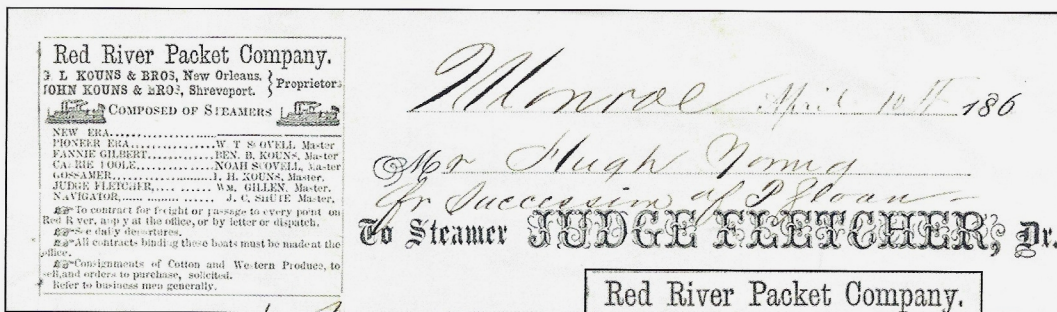 Red River Packet Company.
G. L KOUNS & BROS, New Orleans. } Proprietors
JOHN KOUNS & BROS, Shreveport.
COMPOSED OF STEAMERS
NEW ERA
PIONEER ERA W T SCOVELL Master
FANNIE GILBERT BEN. B. KOUNS, Master
CARRIE POOLE NOAH SCOVELL, Master
GOSSAMER I. H. KOUNS, Master.
JUDGE FLETCHER, WM. GILLEN, Master.
NAVIGATOR, J. C. SHUTE Master.
To contract for freight or passage to every point on
Red River, apply at the office, or by letter or dispatch.
See daily departures.
All contracts binding these boats must be made at the
office.
Consignments of Cotton and Western Produce, to
sell, and orders to purchase, solicited.
Refer to business men generally.
Monroe April 10th 186
Mr Hugh Young
for Succession of P Sloan
To Steamer JUDGE FLETCHER, Dr.
Red River Packet Company.